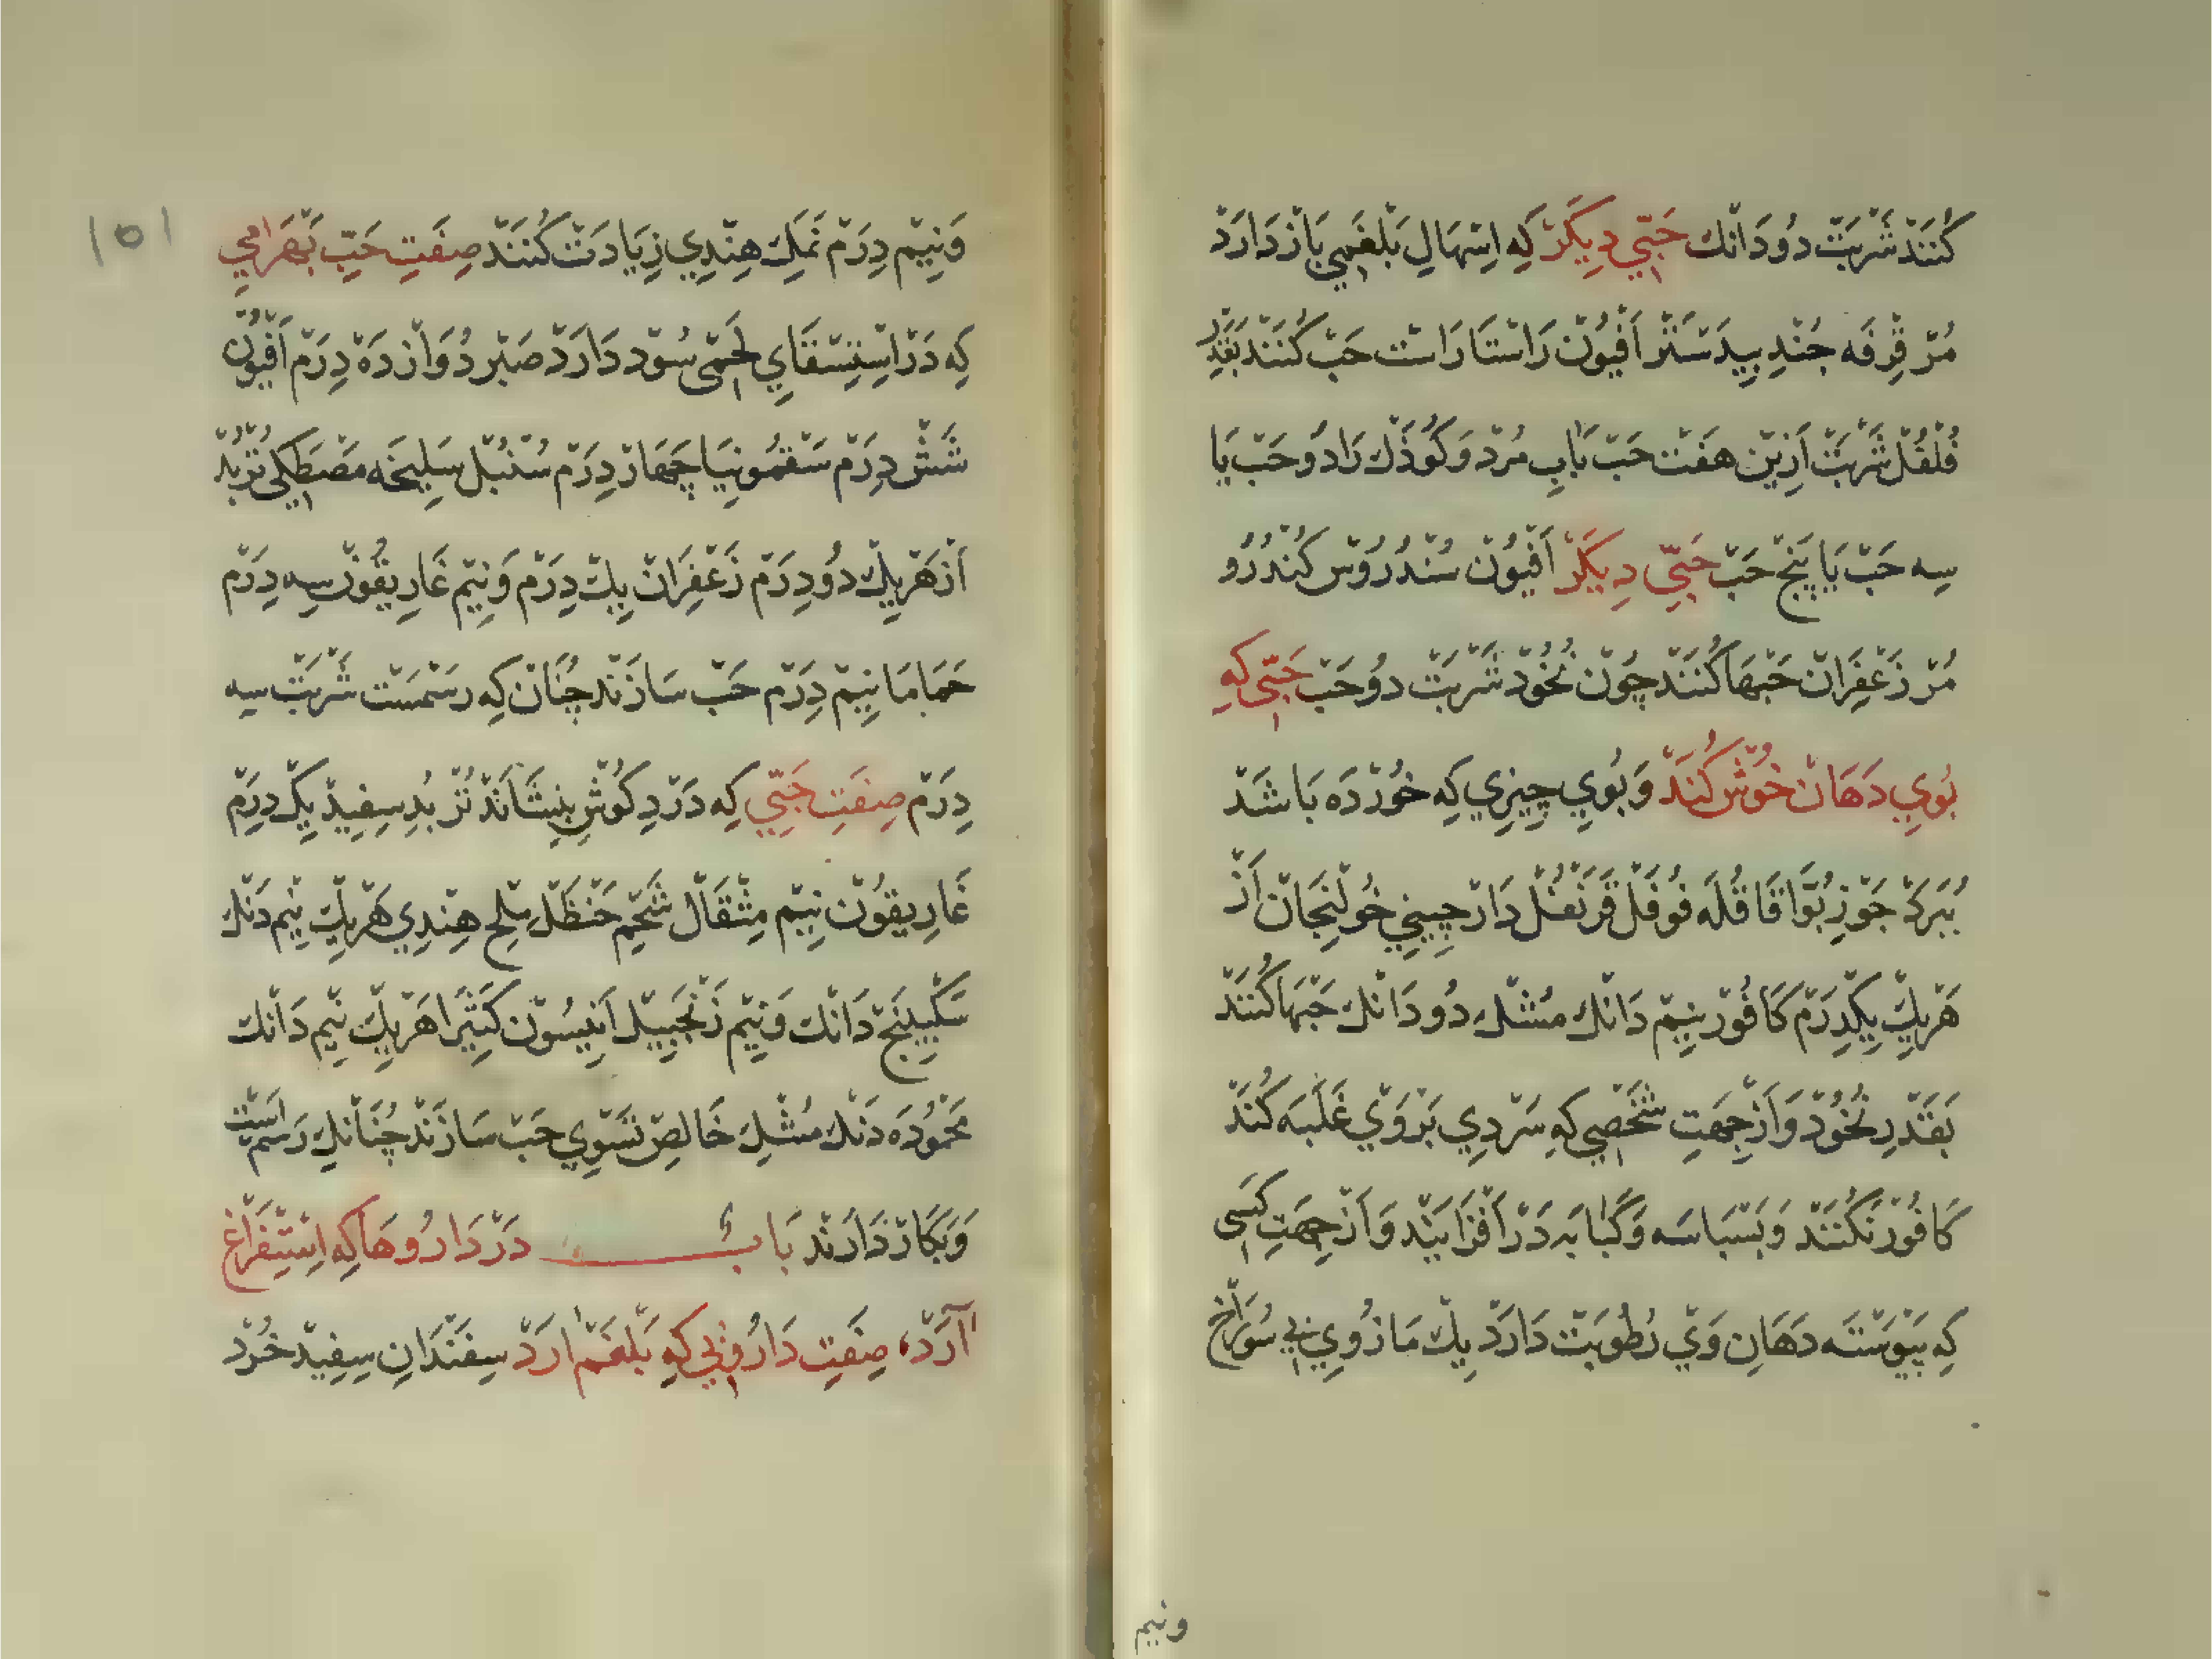 كُنَنْدْ شَرْبَتْ دُودَانْك حَبِّي دِيكَرْ كِه اِسْهَالِ بَلْغَمِي بَازْ دَارَدْ
مُرّ قِرْفَه جُنْدِ بِيدَسْتَرْ اَفْيُونْ رَاسْتَارَاسْت حَبْ كُنَنْد بَقَدْرِ
فُلْفُلْ شَرْبَتْ اَزِينْ هَفْت حَبْ بَابِ مُرْد وَ كُوذَك رَا دُو حَبْ يَا
سِه حَبْ يَا پَنْج حَبْ حَبِّي دِيكَرْ اَفْيُونْ سُنْدُرُوسْ كُنْدُرُو
مُرّ زَعْفَرَانْ حَبْهَا كُنَنْد چُونْ نُخُوْد شَرْبَتْ دُو حَبْ حَبِّي كِه
بُويِ دَهَانْ خُوْشْ كُنَدْ وَ بُويِ چِيزِي كِه خُوْرْدَه بَاشَدْ
بِبَرَدْ جَوْزِ بُوَّا قَاقُلَه فُوفَلْ قَرَنْفُلْ دَارْچِينِي خُولَنْجَانْ اَزْ
هَرْيِكْ يِكْدِرَمْ كَافُورْ نِيمْ دَانْك مُشْك دُو دَانْك حَبْهَا كُنَنْد
بَقَدْرِ نُخُوْد وَ اَزْ جِهَتِ شَخْصِي كِه سَرْدِي بَرْ وَيْ غَلَبَه كُنَدْ
كَافُورْ نَكُنَنْد وَ بَسْبَاسَه وَ كَبَابَه دَرْ اَفْزَايَنْد وَ اَزْ جِهَتِ كَسِي
كِه پَيْوَسْتَه دَهَانِ وَيْ رُطُوبَتْ دَارَدْ يِك مَازُويِ بِي سُورَاخ
ونيم
١٥١
وَنِيمْ دِرَمْ نَمَكِ هِنْدِي زِيَادَتْ كُنَنْد صِفَتِ حَبِّ بَهْرَامِي
كِه دَرْ اِسْتِسْقَايِ لَحْمِي سُوْد دَارَدْ صَبْر دُوَازْدَهْ دِرَمْ اَفْيُونْ
شَشْ دِرَمْ سَقْمُونِيَا چَهَارْ دِرَمْ سُنْبُل سَلِيخَه مَصْطَكِي تُرْبُدْ
اَزْ هَرْيِك دُو دِرَمْ زَعْفَرَانْ يِكْ دِرَمْ وَ نِيمْ غَارِيقُونْ سِه دِرَمْ
حَمَامَا نِيمْ دِرَمْ حَبْ سَازَنْد چُنَانْ كِه رَسْمَسْت شَرْبَتْ سِه
دِرَمْ صِفَتِ حَبِّي كِه دَرْدِ كُوْشْ بِنِشَانَدْ تُرْبُدِ سِفِيدْ يِكْ دِرَمْ
غَارِيقُونْ نِيمْ مِثْقَالْ شَحْمِ حَنْظَلْ مِلْحِ هِنْدِي هَرْيِكْ نِيمْ دَنْك
سَكْبِينَجْ دَانْك وَ نِيمْ زَنْجَبِيلْ اَنِيسُونْ كَتِيرَا هَرْيِكْ نِيمْ دَانْك
مَحْمُودَه دَنْك مُشْكِ خَالِصْ تَسُّوِي حَبْ سَازَنْد چُنَانْك رَسْم اَسْت
وَ بَكَارْ دَارَنْد بَابْ دَرْ دَارُوهَا كِه اِسْتِفْرَاغ
آرَدْ، صِفَتِ دَارُويِي كِه بَلْغَمْ آرَدْ سِفَنْدَانِ سِفِيدْ خُرْد